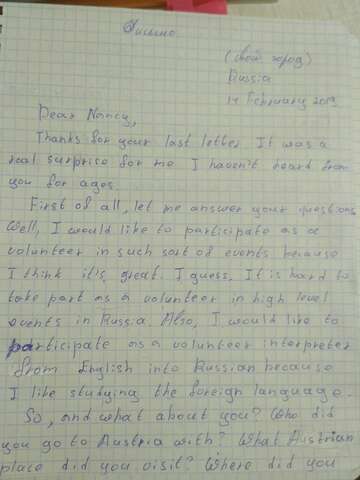 Письмо
(свой город)
Russia
14 February 2019
Dear Nancy,
Thanks for your last letter. It was a
real surprise for me I haven't heard from
you for ages.
First of all, let me answer your questions
Well, I would like to participate as a
volunteer in such sort of events because
I think it's great. I guess. It is hard to
take part as a volunteer in high level
events in Russia. Also, I would like to
participate as a volunteer interpreter
from English into Russian because
I like studying the foreign language.
So, and what about you? Who did
you go to Austria with? What Austrian
place did you visit? Where did you